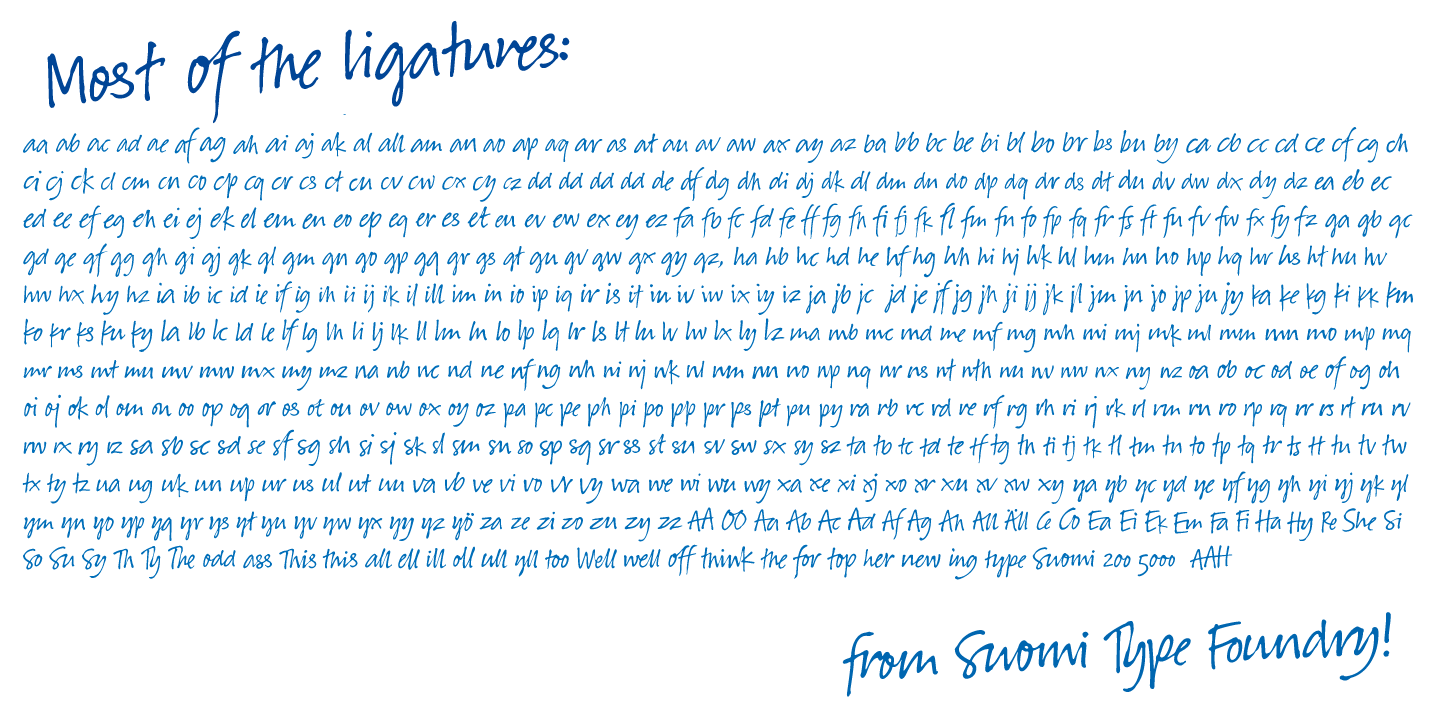 Most of the ligatures:
aa ab ac ad ae af ag ah ai aj ak al all am an ao ap aq ar as at au av aw ax ay az ba bb bc be bi bl bo br bs bu by ca cb cc cd ce cf cg ch
ci cj ck cl cm cn co cp cq cr cs ct cu cv cw cx cy cz dd dd dd dd de df dg dh di dj dk dl dm dn do dp dq dr ds dt du dv dw dx dy dz ea eb ec
ed ee ef eg eh ei ej ek el em en eo ep eq er es et eu ev ew ex ey ez fa fb fc fd fe ff fg fh fi fj fk fl fm fn fo fp fq fr fs ft fu fv fw fx fy fz ga gb gc
gd ge gf gg gh gi gj gk gl gm gn go gp gq gr gs gt gu gv gw gx gy gz, ha hb hc hd he hf hg hh hi hj hk hl hm hn ho hp hq hr hs ht hu hv
hw hx hy hz ia ib ic id ie if ig ih ii ij ik il ill im in io ip iq ir is it iu iv iw ix iy iz ja jb jc jd je jf jg jh ji jj jk jl jm jn jo jp ju jy ka ke kg ki kk km
ko kr ks ku ky la lb lc ld le lf lg lh li lj lk ll lm ln lo lp lq lr ls lt lu lv lw lx ly lz ma mb mc md me mf mg mh mi mj mk ml mm mn mo mp mq
mr ms mt mu mv mw mx my mz na nb nc nd ne nf ng nh ni nj nk nl nm nn no np nq nr ns nt nth nu nv nw nx ny nz oa ob oc od oe of og oh
oi oj ok ol om on oo op oq or os ot ou ov ow ox oy oz pa pc pe ph pi po pp pr ps pt pu py ra rb rc rd re rf rg rh ri rj rk rl rm rn ro rp rq rr rs rt ru rv
rw rx ry rz sa sb sc sd se sf sg sh si sj sk sl sm sn so sp sq sr ss st su sv sw sx sy sz ta tb tc td te tf tg th ti tj tk tl tm tn to tp tq tr ts tt tu tv tw
tx ty tz ua ug uk un up ur us ul ut uu va vb ve vi vo vr vy wa we wi wu wy xa xe xi xj xo xr xu xv xw xy ya yb yc yd ye yf yg yh yi yj yk yl
ym yn yo yp yq yr ys yt yu yv yw yx yy yz yö za ze zi zo zu zy zz AA OO Aa Ab Ac Ad Af Ag Ah All Äll Ce Co Ea Ei Ek Em Fa Fi Ha Hy Re She Si
So Su Sy Th Ty The odd ass This this all ell ill oll ull yll too Well well off think the for top her new ing type Suomi 200 5000 AAH
from Suomi Type Foundry!